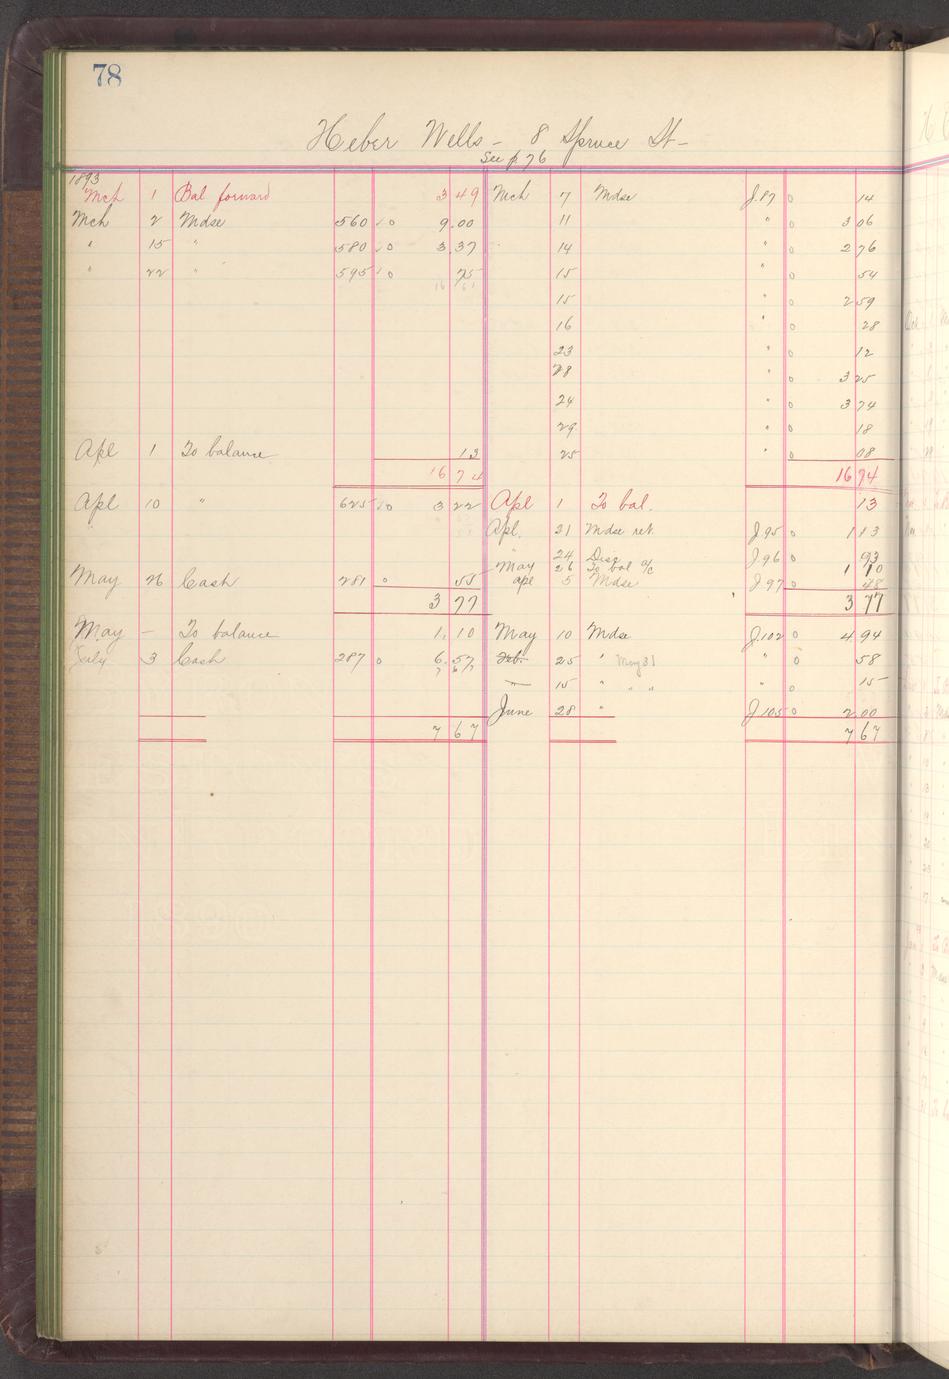 78
Heber Wells - 8 Spruce St -
See p 76
1893
Mch 1 Bal forward 3 49 Mch 7 Mdse J.87 0 14
Mch 2 Mdse 560 0 9.00 11 " 0 3 06
" 15 " 580 0 3.37 14 " 0 2 76
" 22 " 595 0 75 15 " 0 54
16 61
15 " 0 2 59
16 " 0 28
23 " 0 12
28 " 0 3 25
24 " 0 3 74
29 " 0 18
Apl 1 To balance 13 25 " 0 08
16 74 16 74
Apl 10 " 625 0 3 22 Apl 1 To bal. 13
Apl. 21 Mdse ret. J.95 0 1 13
" 24 Disc J.96 0 93
May 26 To bal a/c 1 10
May 26 Cash 281 0 55 Apl 5 Mdse J.97 0 48
3 77 3 77
May - To balance 1.10 May 10 Mdse J.102 0 4 94
July 3 Cash 287 0 6.57 Feb. 25 " May 31 " 0 58
7 67
15 " " " " 0 15
June 28 " J.105 0 2 00
7 67 7 67